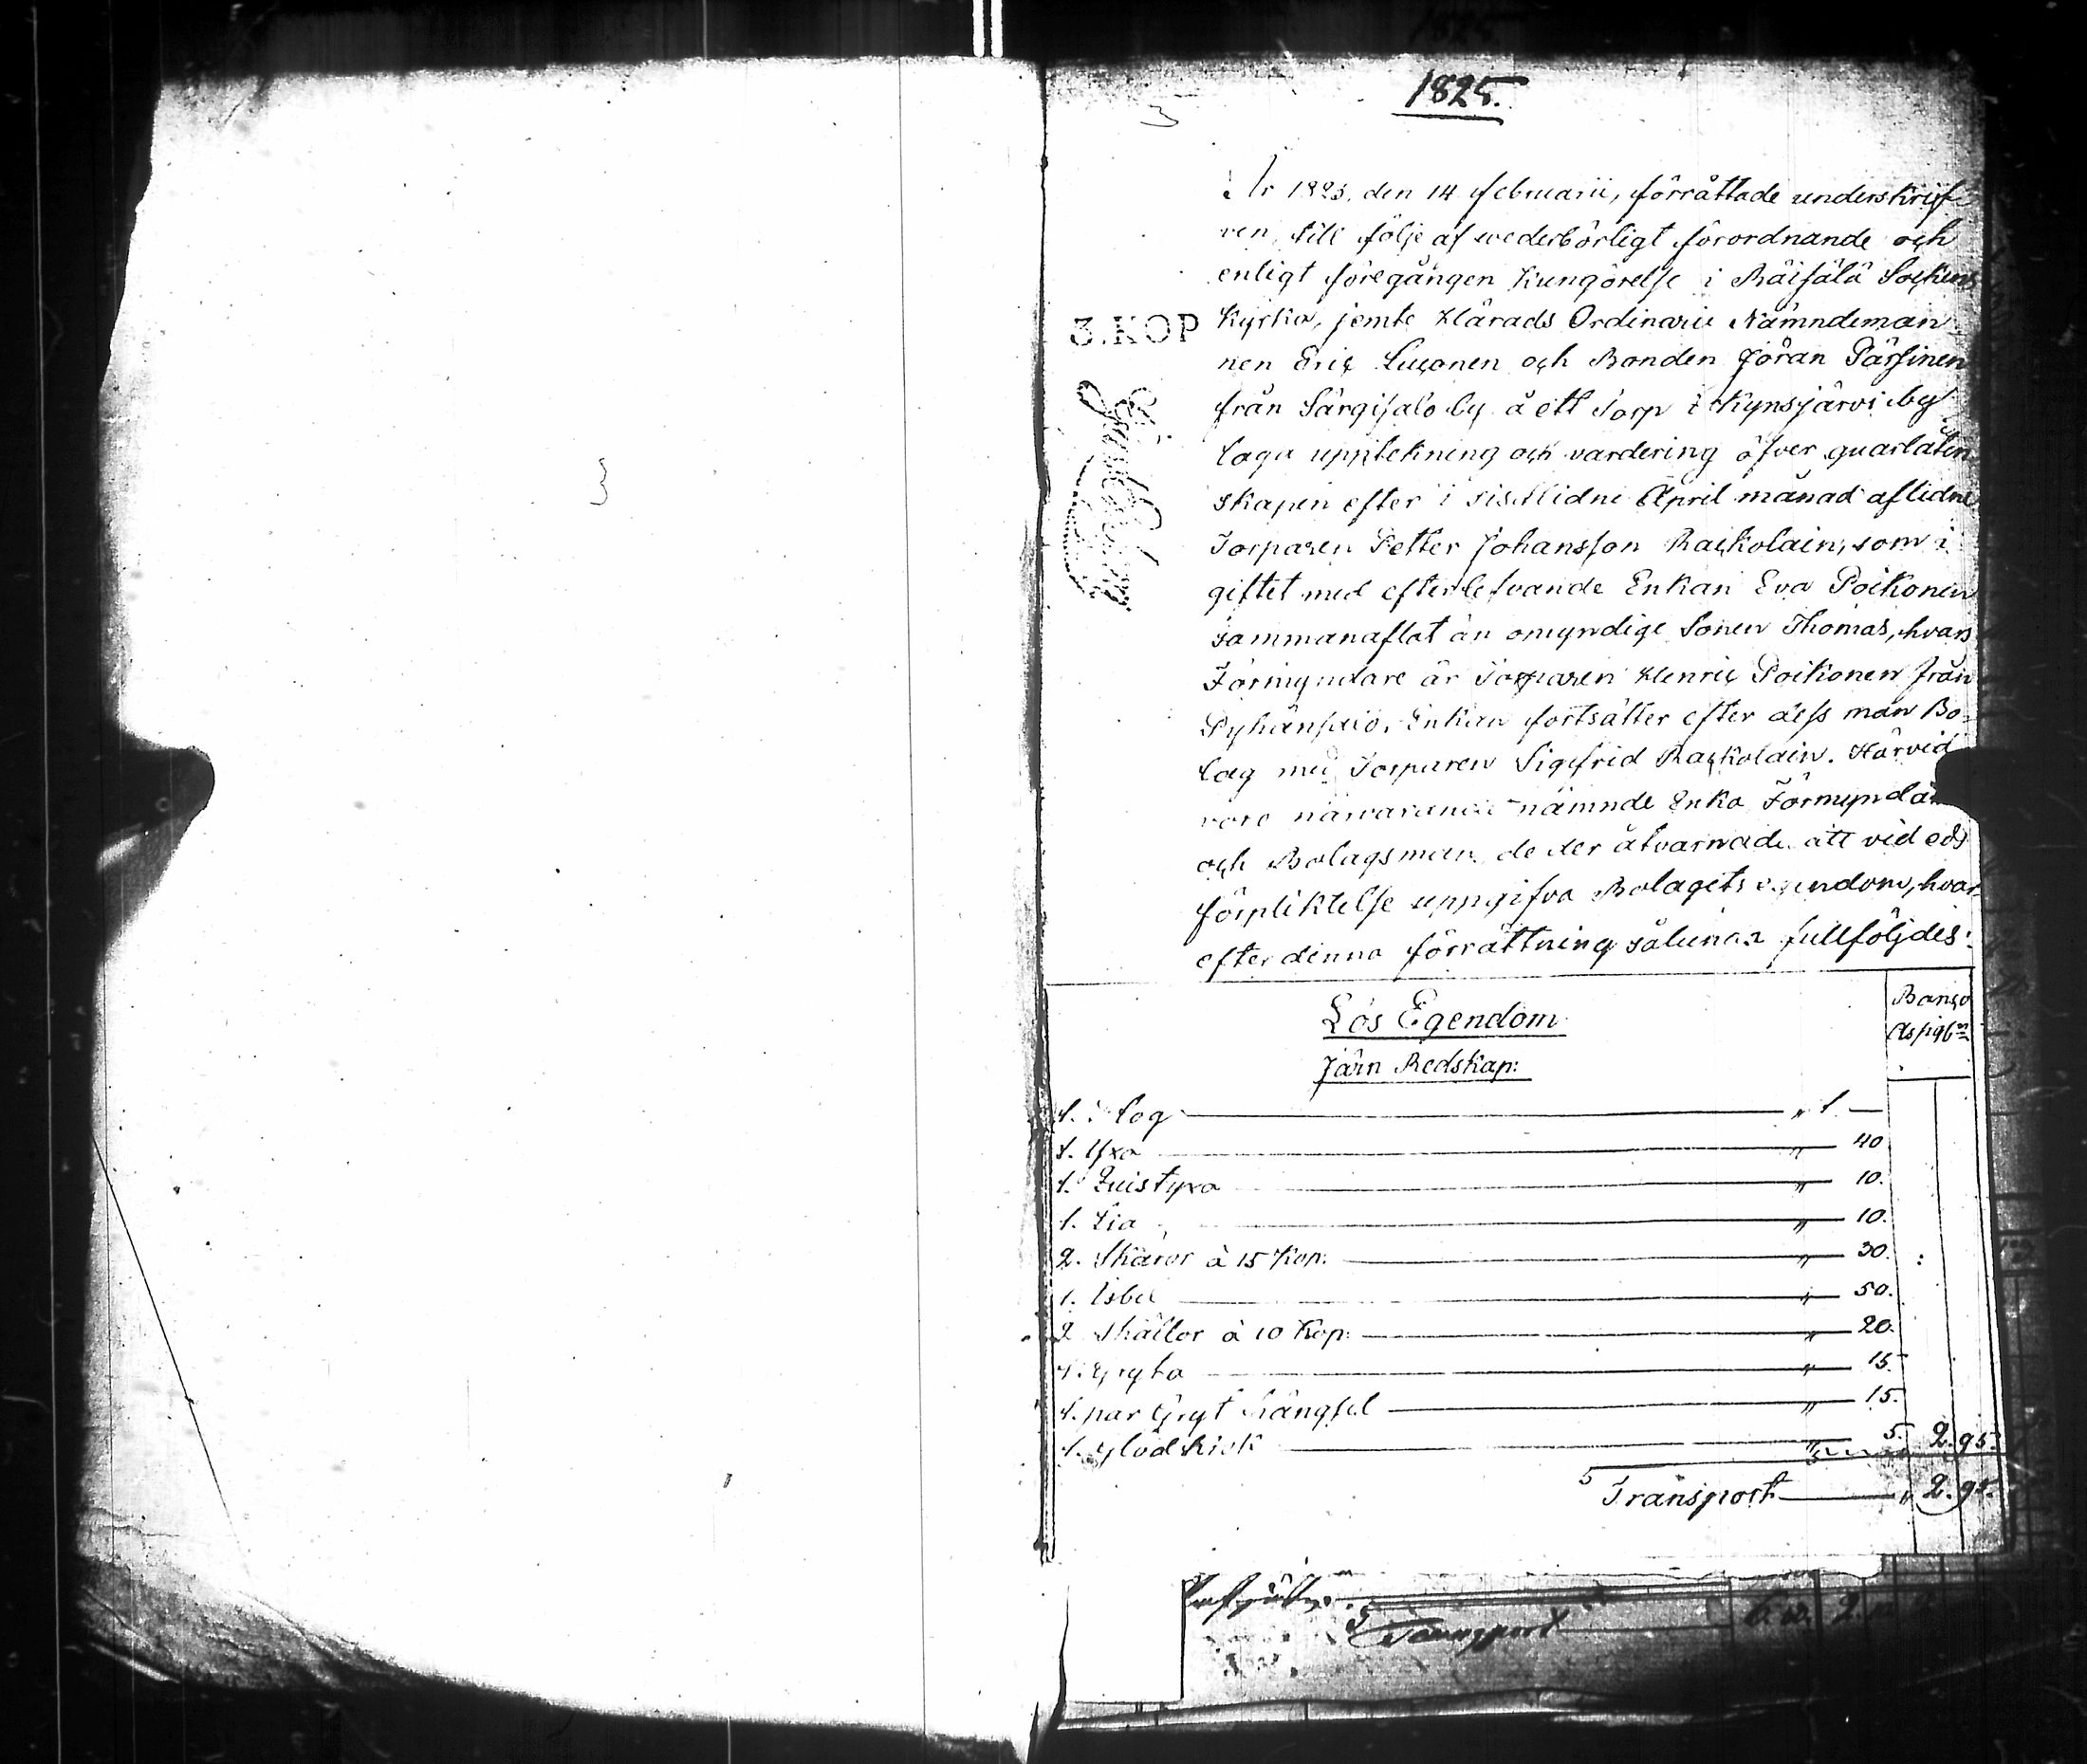 1825.
3
År 1825, den 14 Februarii, förrättade underskrif-
ven, till följe af wederbörligt förordnande och
enligt föregången Kungörelse i Räisälä Sockens
3. KOP
Kyrka, jemte Härads Ordinarie Nämndeman-
nen Eric Luconen och Bonden Jöran Pärsinen
från Särgisalo by å ett Torp i Kynsjärvi by
laga uppteckning och värdering öfver quarlåten-
skapen efter i sistlidne April månad aflidne
Torparen Petter Johansson Rackolain, som i
giftet med efterlefvande Enkan Eva Poikonen
sammanaflat än omyndige Sonen Thomas, hvars
Förmyndare är Torparen Henric Poikonen från
Enkan fortsätter efter dess man Bo-
lag med Torparen Sigfrid Rackolain. Härvid
voro närvarande nämnde Enka Förmyndare
och Bolagsman, de der åtvarnade att vid eds
förpliktelse uppgifva Bolagets egendom, hvar-
efter denna förrättning sålunda fullföljdes:
Lös Egendom
Banco
Assigb:n
Järn Redskap:
1. Plog " 1. —
1. Yxa " 40.
1. Quistyxa " 10.
1. Lia " 10.
2. Skäror à 15 Kop: " 30.
1. Isbil " 50.
2 Skällor à 10 Kop: " 20.
1. Gryta " 15.
1. par Gryt hängsel " 15.
1. Glödkrok " 5. 2. 95.
Transport " 2. 95.
3
Transport